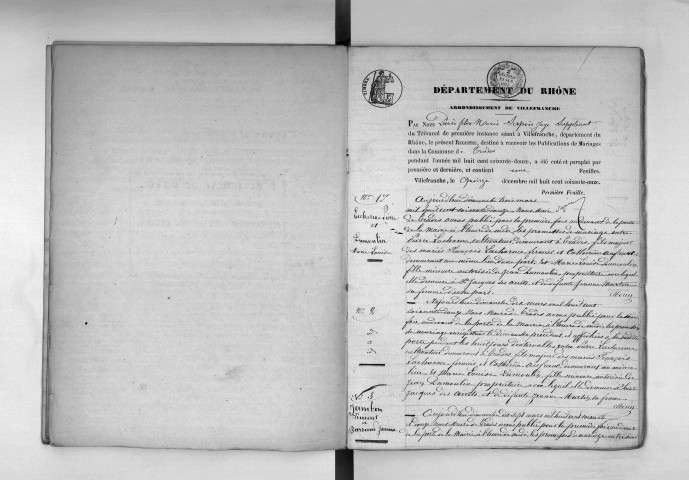 DÉPARTEMENT DU RHÔNE
ARRONDISSEMENT DE VILLEFRANCHE
PAR NOUS Juge Suppléant
du Tribunal de première instance séant à Villefranche, département du
Rhône, le présent REGISTRE, destiné à recevoir les Publications de Mariages
dans la Commune d e Trades
pendant l'année mil huit cent soixante-douze, a été coté et paraphé par
première et dernière, et contient une Feuilles.
Villefranche, le Quinze décembre mil huit cent soixante-onze.
Première Feuille.
No 1
Lacharme Pierre
et
Dumontin
Marie Louise
Aujourd'hui dimanche trois mars
mil huit cent soixante douze Nous Maire
de Trades avons publié pour la première fois au devant de la porte
de la mairie à l'heure de midi les promesses de mariage entre
Pierre Lacharme cultivateur demeurant à Trades, fils majeur
des mariés François Lacharme fermier et Catherine
demeurant au même lieu d'une part, et Marie Louise Dumontin
fille mineure autorisée de Jean Dumontin propriétaire avec lequel
elle demeure à St Jacques des arrêts et de défunte Jeanne
sa femme d'autre part.
No 2
Aujourd'hui dimanche dix mars mil huit cent
soixante douze Nous Maire de Trades avons publié pour la
fois au devant de la porte de la Mairie à l'heure de midi les promesses
de mariage enregistrées le dimanche précédent et affichées à la dite
porte pendant les huit jours d'intervalles entre Pierre Lacharme
cultivateur demeurant à Trades fils majeur des mariés François
Lacharme fermier et Catherine demeurant au même
lieu et Marie Louise Dumontin, fille mineure autorisée de
Jean Dumontin propriétaire avec lequel elle demeure à Saint
Jacques des arrêts et de défunte Jeanne sa femme
No 3
Jambon
et
Jeanne
Aujourd'hui dimanche dix sept mars mil huit cent soixante
douze nous Maire de Trades avons publié pour la première fois au devant
de la porte de la Mairie à l'heure de midi, les promesses de mariage entre